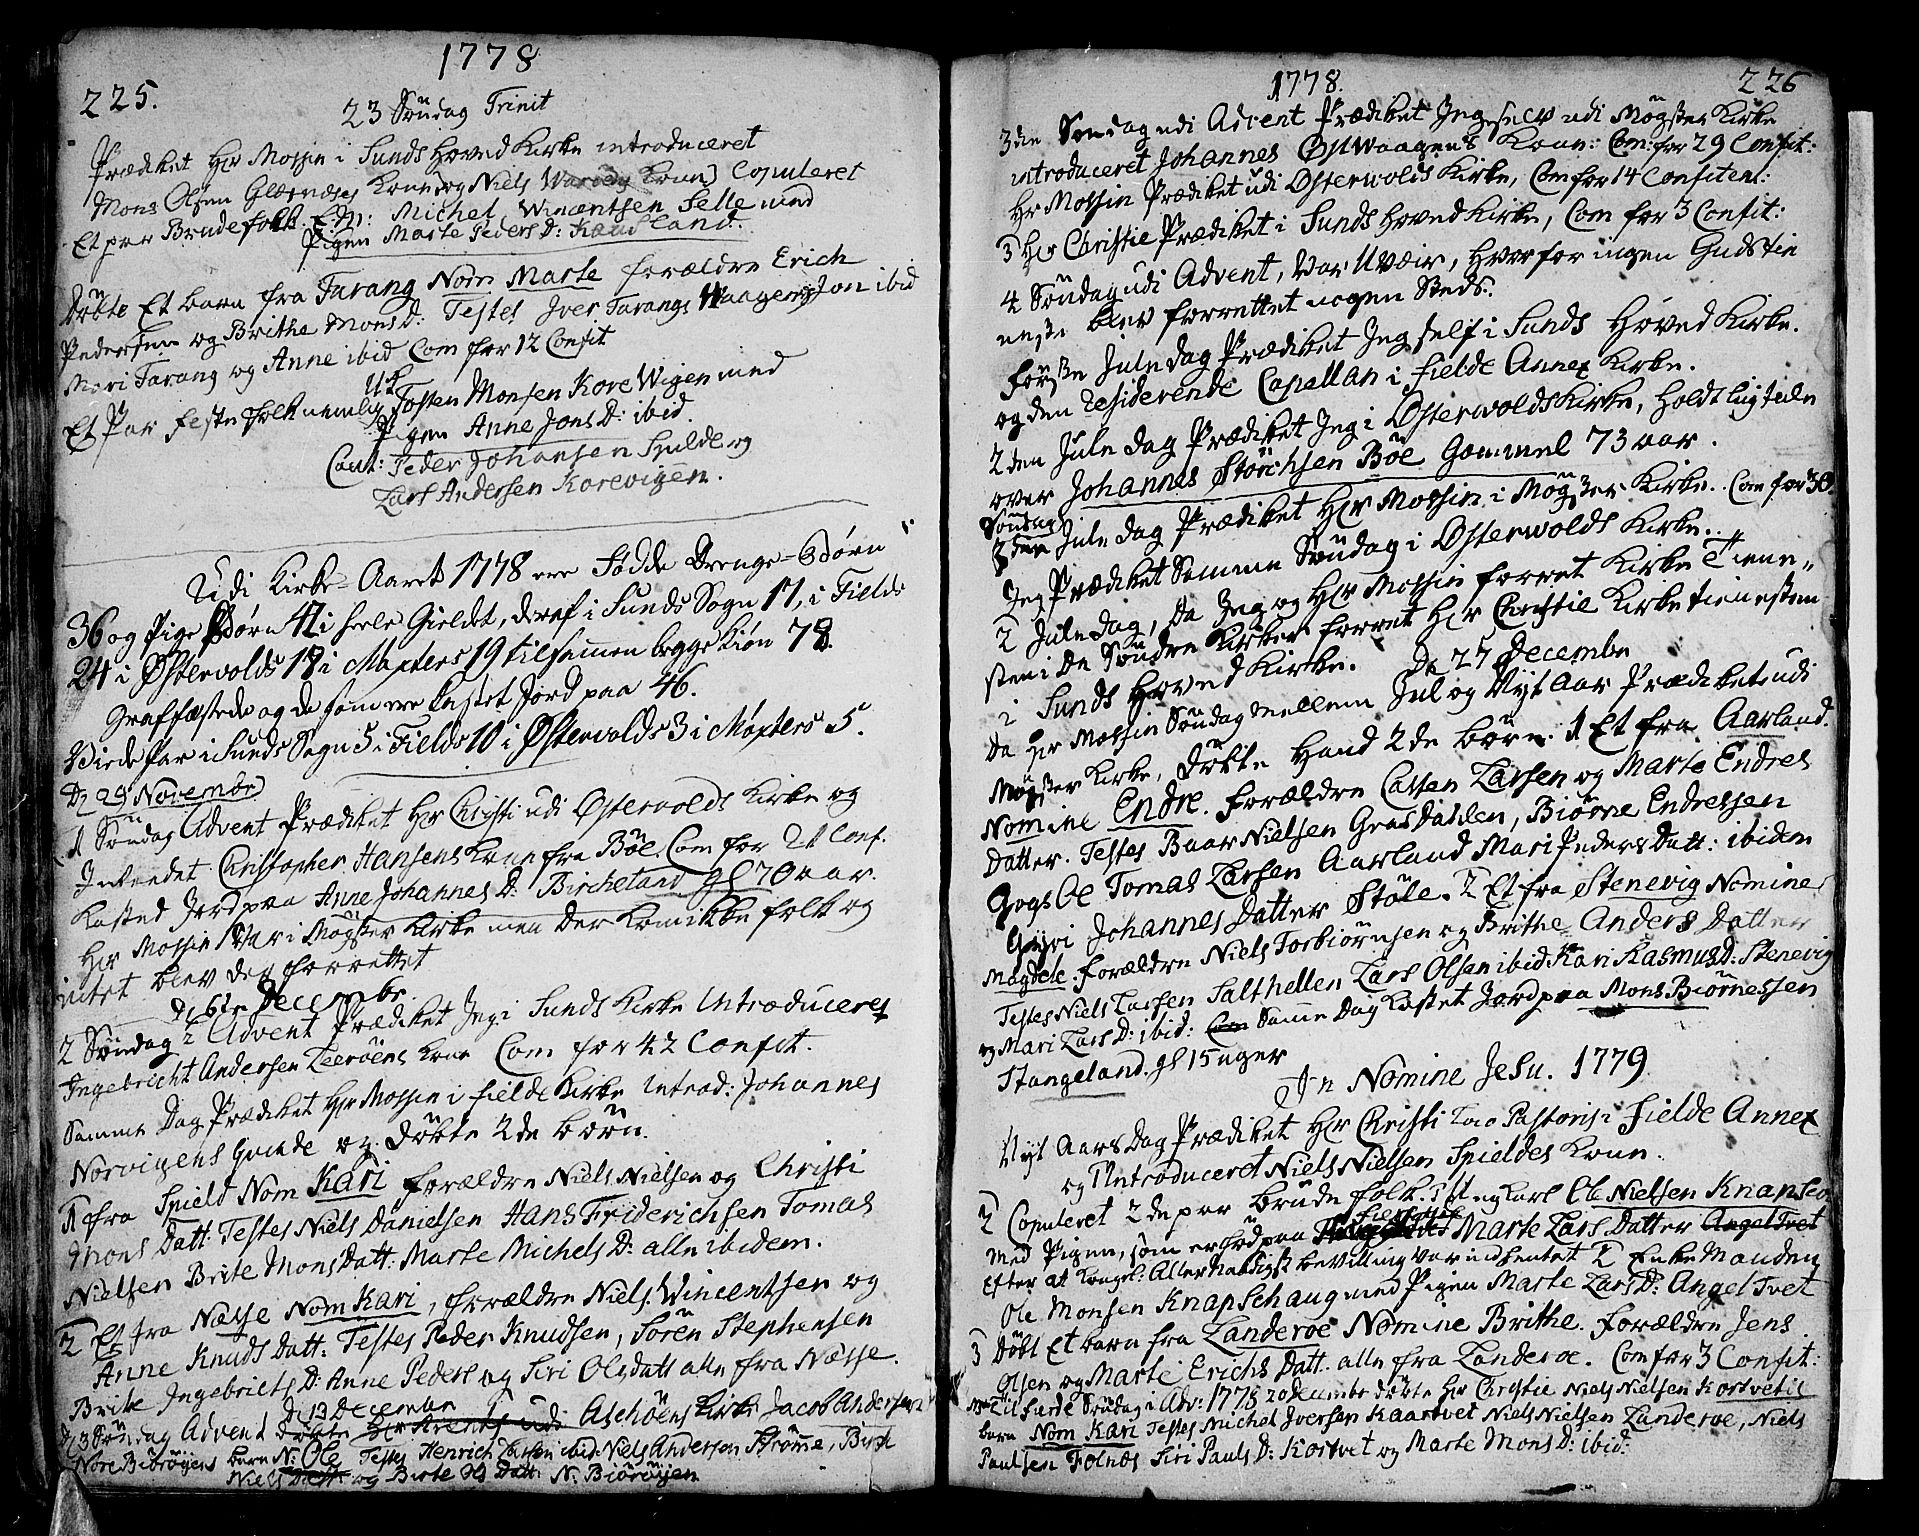 225.
1778
23 Søndag Trinit
Prædiket Hr Mossin i Sunds Hoved Kirke introduceret
Mons Olsen Glæsnæses Kone og Niels Kone Copuleret
Et par Brudefolk. E. M: Michel Vincentsen Selle med
Pigen Marte Peders D: Land.
Døbte Et barn fra Tarang Nom Marte forældre Erich
Pedersen og Brithe Mons D: Testes Iver Tarangs Jon ibid
Mari Tarang og Anne ibid Com for 12 Confit
Et Par feste folk nemlig Tosten Monsen Kore Wigen med
Pigen Anne Jons D: ibid.
Caut: Peder Johansen Spilde og
Lars Andersen Korevigen.
Udi Kirke-Aaret 1778 ere Fødde Drenge-Børn
36 og Pige Børn 42 i heele Gieldet, deraf i Sunds Sogn 17, i Fields
24 i Østervolds 18 i Møxters 19 tilsamen begge Kiøn 78.
Graffæstede og de som ere kastet Jord paa 46.
Viede Par i Sunds Sogn 5 i Fields 10 i Østervolds 3 i Møxters 5.
D 29 Novembr
1 Søndag Advent Prædiket Hr Christi udi Østervolds Kirke og
Christopher Hansens Kone fra Böe. Com for 21 Conf.
Kasted Jord paa Anne Johannes D: Bircheland gl 70 aar.
Hr Mossin var i Møgster Kirke men der kom ikke folk og
intet blev der forrettet
D 6te Decembr.
2 Søndag i Advent Prædiket Jeg i Sunds Kirke Introduceret
Ingebricht Andersen Leerøens kone Com for 42 Confit.
Samme Dag Prædiket Hr Mossin i fielde Kirke Introd: Johannes
Norvigens Qvinde og Døbte 2de børn.
1 fra Spield Nom Kari forældre Niels Nielsen og Christi
Mons Datt: Testes Niels Danielsen Hans Friderichsen Tomas
Nielsen Brite Mons Datt: Marte Michels D: alle ibidem.
2 Et fra Næsse Nom Kari, forældre Niels Wincentsen og
Anne Knuds Datt: Testes Peder Knudsen, Søren Stephensen
Brite Ingebricts D: Anne Peders og Siri Ols datt alle fra Næsse.
D 13 December
3 Søndag Advent Døbte Aschøens Kirke Jacob Andersen
Nore Biørøyens barn N: Ole Testes Henrich Larsen ibid: Niels Andersen Strømme, Birthe
Niels Datt: og Birte Ols Datt N: Biørøyen
1778.
226
3de Søndag udi Advent Prædiket Jeg selv udi Møgster Kirke
introduceret Johannes Østwaagens Kone: Com: for 29 Confit:
Hr Mossin Prædiket udi Østerwolds Kirke, Com for 14 Confitent:
3 Hr Christie Prædiket i Sunds Hoved Kirke, Com for 3 Confit:
4 Søndag udi Advent, Var Uveir, Hvorfor ingen Gudstie
neste blev forrettet nogen Steds.
Første Juledag Prædiket Jeg self i Sunds Hoved Kirke.
og den residerende Capellan i fielde Annex Kirke.
2den Jule dag Prædiket Jeg i Østerwolds Kirke, Holdt ligtale
over Johannes Störchsen Böe Gammel 73 aar.
Søndag
3den Jule dag Prædiket Hr Mossin i Møgster Kirke. Com for 30.
Jeg Prædiket Samme Søndag i Østerwolds Kirke.
2 Jule dag, Da Jeg og Hr Mossin forret Kirke Tiene-
sten i De Søndre Kirker forret Hr Christie Kirketienesten
i Sunds Hoved Kirke. D 27 Decembr
Da Hr Mossin Søndag mellem Jul og Nyt Aar Prædiket udi
Møgster Kirke, Døbte Hand 2de børn. 1 Et fra Aarland.
Nomine Endre. forældre Larsen og Marte Endres
Datter. Testes Baar Nielsen Grasdahlen, Biørne Endressen
Gogs Oe Tomas Larsen Aarland Mari Peders Datt: ibidem
Gyri Johannes Datter Støle. 2 Et fra Stenevig Nomine
Magdele. forældre Niels Torbiørnsen og Brithe Anders Datter
Testes Niels Larsen Salthellen Lars Olsen ibid Kari Rasmus D: Stenevig
og Mari Lars D: ibid: Samme Dag Kastet Jord paa Mons Biørnessen
Stangeland. gl 15 uger
In Nomine Jesu. 1779
Nyt Aars Dag Prædiket Hr Christi Loco Pastoris i Fielde Annex
og 1 Introduceret Niels Nielsen Spieldes Kone.
2 Copuleret 2de par brude folk. 1 Ungkarl Ole Nielsen Knapschog
med Pigen, som er født paa Marte Lars Datter Angeltvet
Efter at Kongel: Aller Naadigst bevilling var indhentet 2 Enke Manden
Ole Monsen Knapschaug med Pigen Marte Lars D: Angel Tvet
3 Døbt Et barn fra Landeroe Nomine Brithe. Forældre Jens
Olsen og Marte Erichs Datt. alle fra Landeroe. Com for 3 Confit:
fierde Søndag i Adv: 1778 20 Decembr døbte Hr Christie Niels Nielsen Kortvetis
barn Nom Kari Testes Michel Iversen Kaartvet Niels Nielsen Landeroe, Niels
Paulsen Folnæs Siri Pauls D: Kortvet og Marte Mons D: ibid: